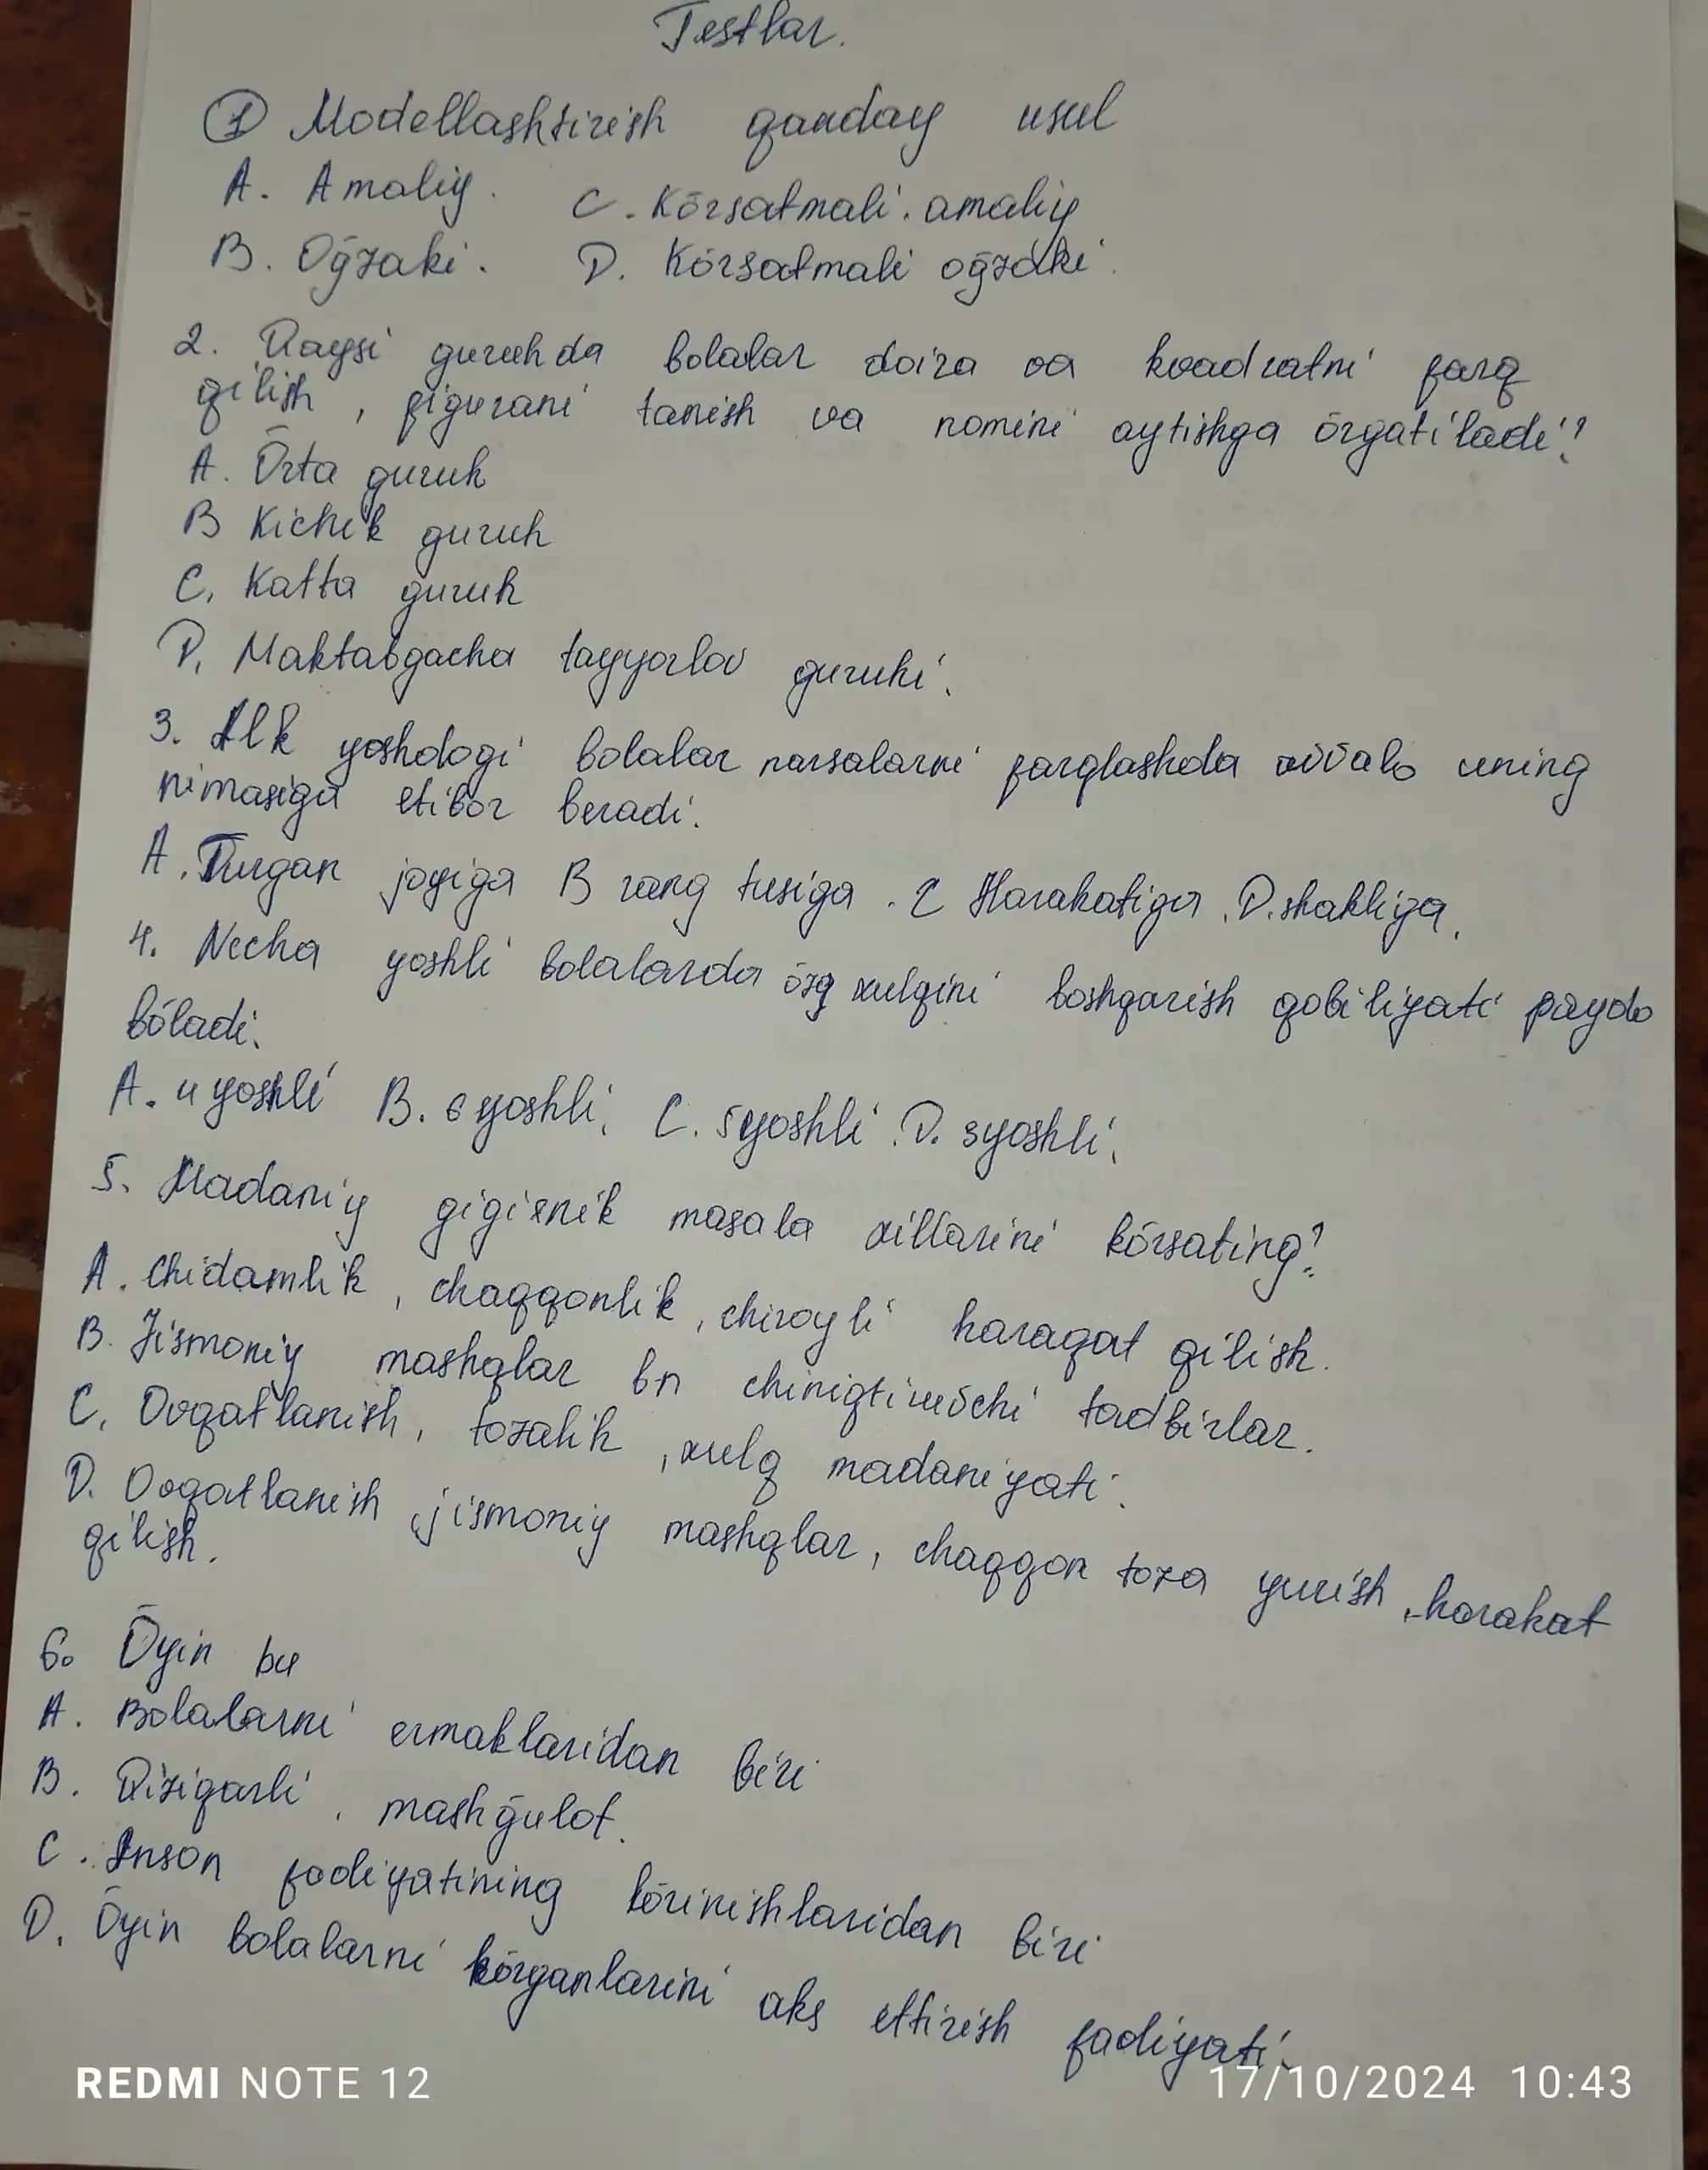 Testlar.
① Modellashtirish qanday usul
A. Amaliy. C. Kōrsatmali. amaliy
B. Oḡzaki. D. Kōrsatmali oḡzaki.
2. Qaysi guruhda bolalar doira va kvadratni farq
qilish, figurani tanish va nomini aytishga ōrgatiladi?
A. Ōrta guruh
B Kichik guruh
C. Katta guruh
D. Maktabgacha tayyorlov guruhi.
3. Ilk yoshdagi bolalar narsalarni farqlashda avvalo uning
nimasiga etibor beradi.
A. Turgan joyiga B rang tusiga. C Harakatiga. D. shakliga.
4. Necha yoshli bolalarda ōzq xulqini boshqarish qobiliyati paydo
bōladi.
A. 4 yoshli B. 6 yoshli. C. 5 yoshli. D. 3 yoshli.
5. Madaniy gigienik masala xillarini kōrsating?
A. Chidamlik, chaqqonlik, chiroyli haraqat qilish.
B. Jismoniy mashqlar bn chiniqtiruvchi tadbirlar.
C. Ovqatlanish, tozalik, xulq madaniyati.
D. Ovqatlanish, jismoniy mashqlar, chaqqon toza yurish, harakat
qilish.
6. Ōyin bu
A. Bolalarni ermaklaridan biri
B. Qiziqarli. mashḡulot.
C. Inson faoliyatining kōrinishlaridan biri
D. Ōyin bolalarni kōrganlarini aks ettirish faoliyati.
REDMI NOTE 12
17/10/2024 10:43